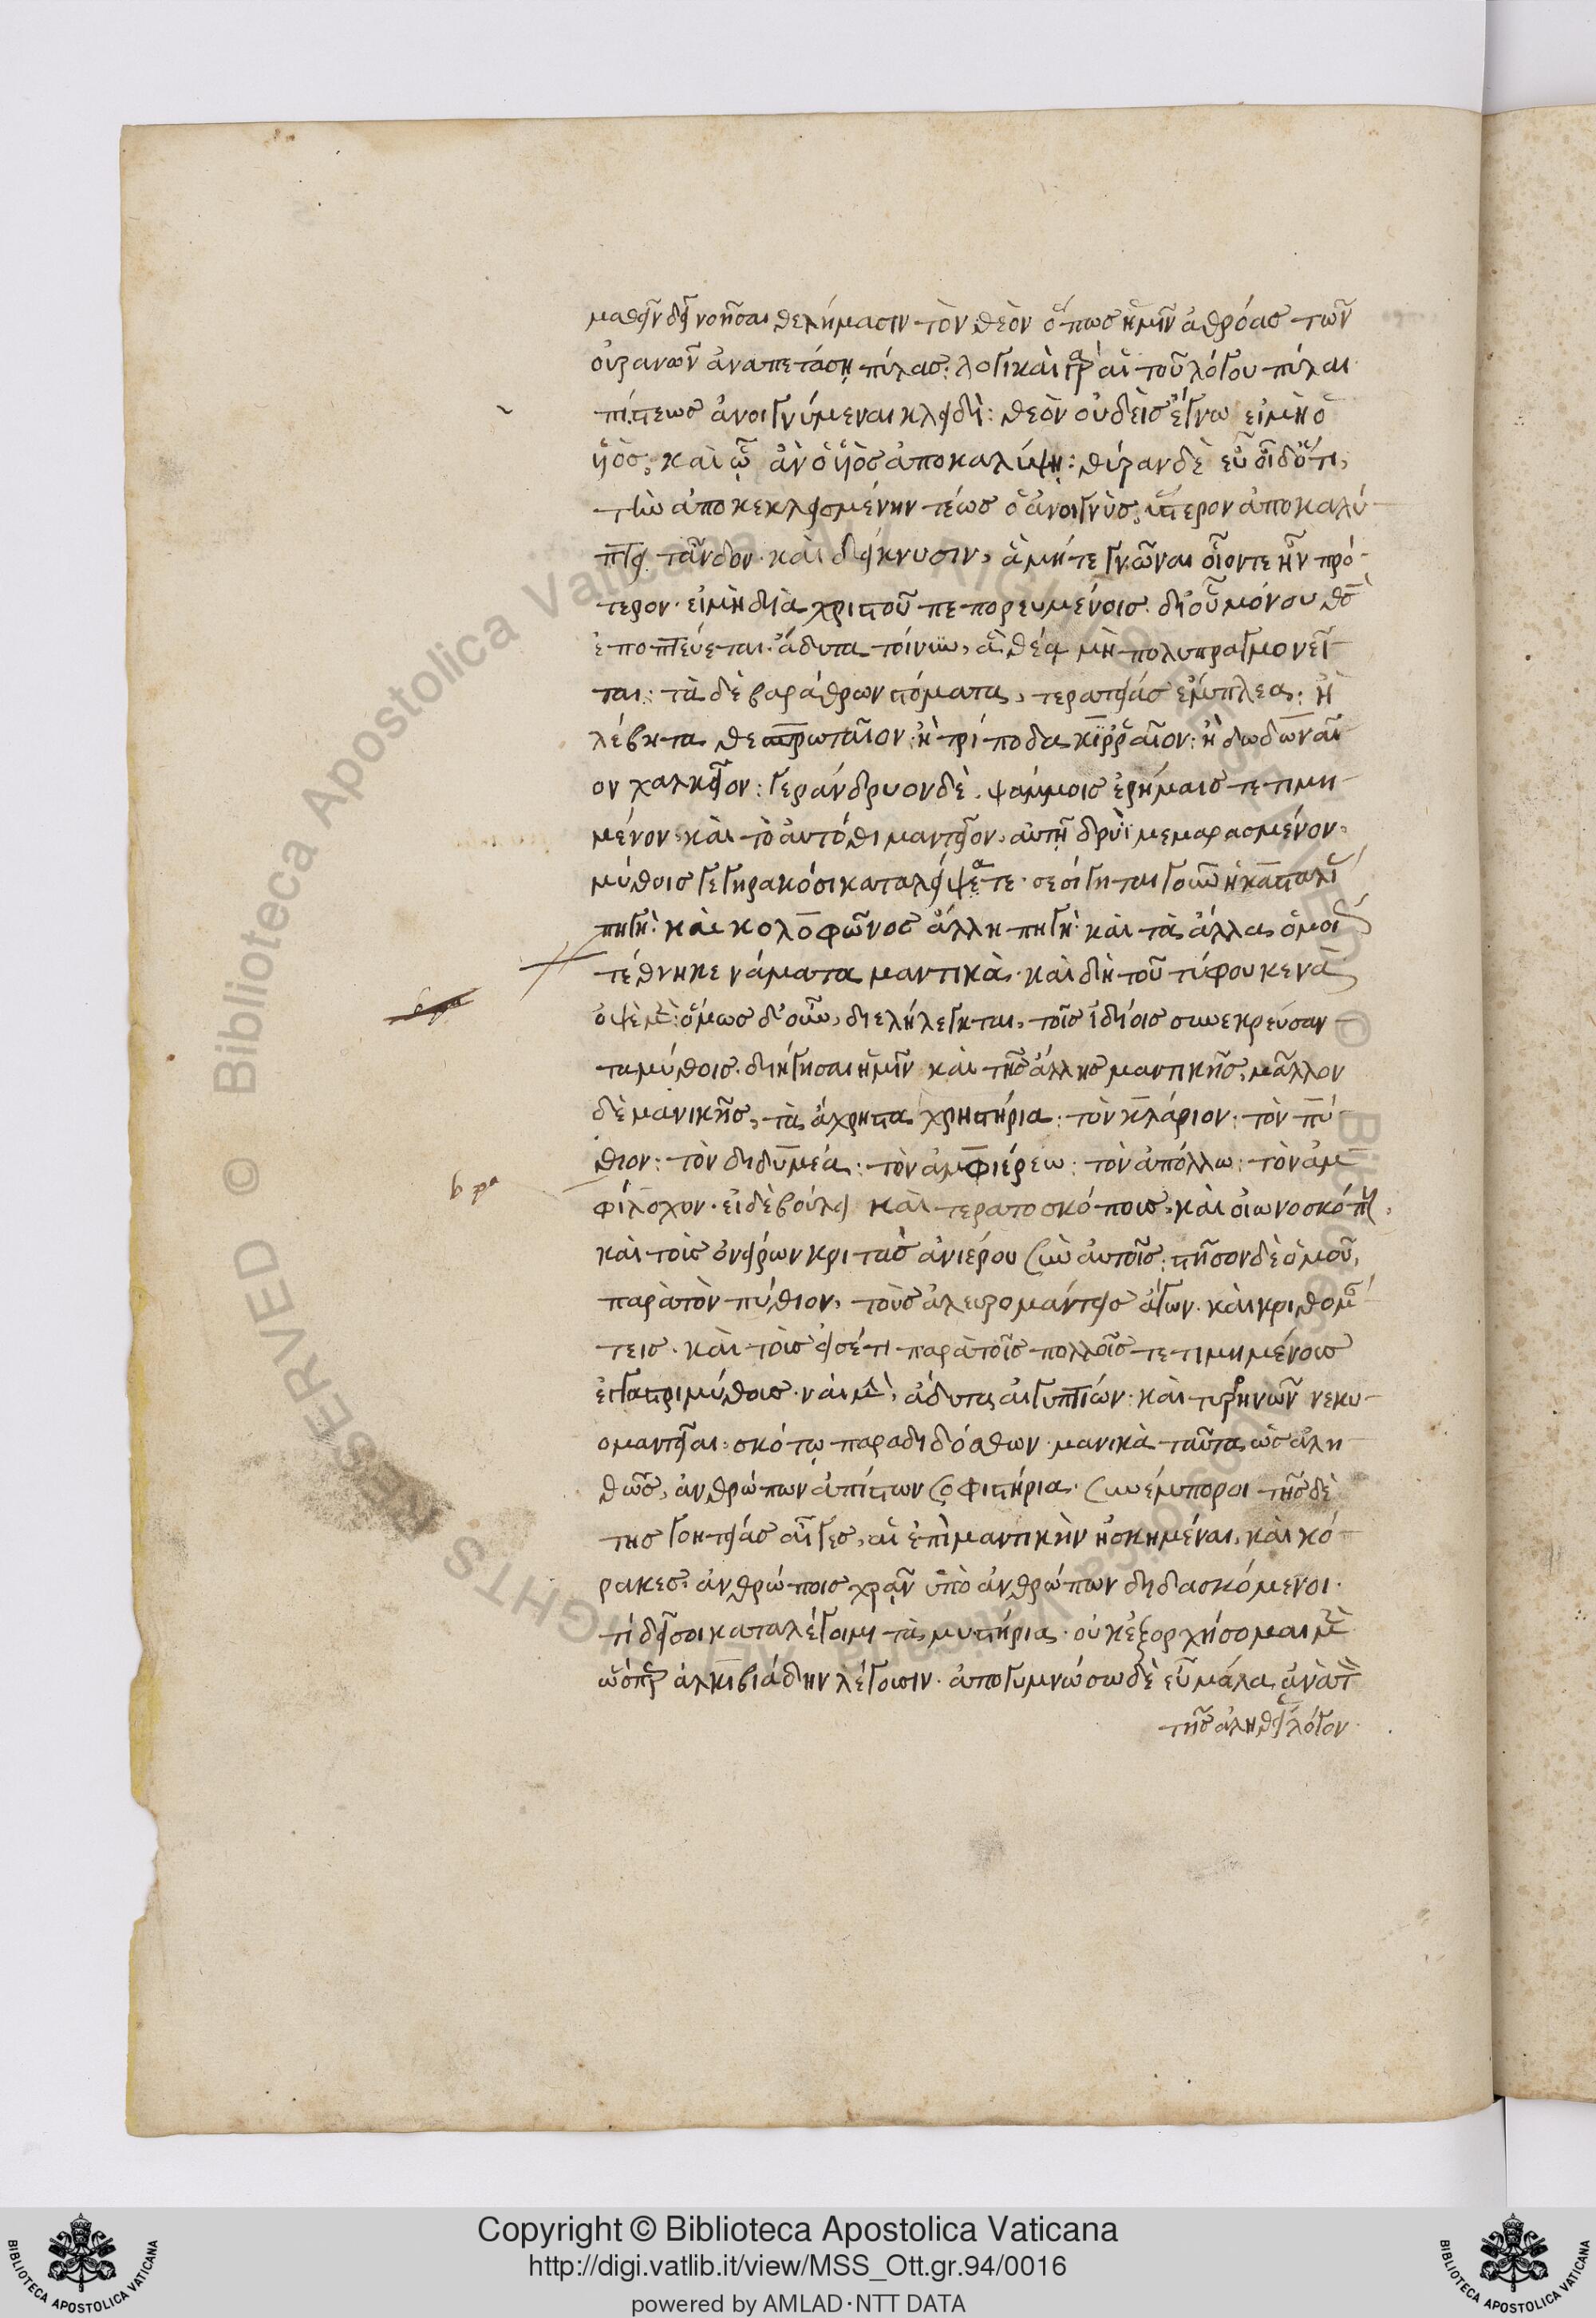 μαθεῖν δεῖν οῆσαι θελήμασιν τὸν θεὸν ὅπως ἡμῖν ἀθρόας τῶν
οὐρανῶν ἀναπετάσῃ πύλας· λογικαὶ γὰρ αἱ τοῦ λόγου πύλαι
πίστεως ἀνοιγνύμεναι κλειδί: θεὸν οὐδεὶς ἔγνω εἰμὴ ὁ
υἱὸς, καὶ ᾧ ἂν ὁ υἱὸς ἀποκαλύψῃ: θύραν δὲ εὖ οἶδ ὅτι,
τὴν ἀποκεκλεισμένην τέως ὁ ἀνοιγνὺς, ὕστερον ἀποκαλύ
πτει τἄνδον· καὶ δείκνυσιν, ἃ μήτε γνῶναι οἷόντε ἦν πρό
τερον· εἰμὴ διὰ χριστοῦ πεπορευμένοις· δι οὗ μόνου θς
ἐποπτεύεται· ἄδυτα τοίνυν, ἄθεα μὴ πολυπραγμονεῖ
ται: τὰ δὲ βαράθρων στόματα, τερατείας ἔμπλεα: ἢ
λέβητα θεσπρωταῖον: ἢ τρίποδα κιρραῖον: ἢ δωδωναῖ
ον χαλκεῖον: γεράνδρυον δὲ ψάμμοις ἐρήμαις τετιμη
μένον· καὶ τὸ αὐτόθι μαντεῖον, αὐτῇ δρυῒ μεμαρασμένον,
μύθοις γεγηρακόσι καταλείψατε· σεσίγηται γοῦν ἡ κασταλί
πηγή: καὶ κολοφῶνος ἄλλη πηγή: καὶ τὰ ἄλλα ὁμοί
τέθνηκε νάματα μαντικὰ· καὶ δὴ τοῦ τύφου κενὰ
ὀψὲ μὲν: ὅμως δ οὖν, διελήλεγκται, τοῖς ἰδίοις συνεκρεύσαν
τα μύθοις· διήγησαι ἡμῖν καὶ τῆς ἄλλης μαντικῆς, μᾶλλον
δὲ μανικῆς, τὰ ἄχρηστα χρηστήρια: τὸν κλάριον· τὸν πύ
θιον: τὸν διδυμέα: τὸν ἀμφιέρεω: τὸν ἀπόλλω: τὸν ἀμ
φίλοχον· εἰ δὲ βούλει καὶ τερατοσκόπους, καὶ οἰωνοσκόπους,
καὶ τοὺς ὀνείρων κριτὰς ἀνιέρου σὺν αὐτοῖς: στῆσον δὲ ὁμοῦ,
παρὰ τὸν πύθιον, τοὺς ἀλευρομάντεις ἄγων· καὶ κριθομάν
τεις· καὶ τοὺς εἰσέτι παρὰ τοῖς πολλοῖς τετιμημένους
ἐγγαστριμύθους· ναὶ μὴν, ἄδυτα αἰγυπτίων· καὶ τυρρηνῶν νεκυ
ομαντεῖαι: σκότῳ παραδιδόσθων· μανικὰ ταῦτα ὡς ἀλη
θῶς, ἀνθρώπων ἀπίστων σοφιστήρια· συνέμποροι τῆσδε
της γοητείας αἶγες, αἱ ἐπὶ μαντικὴν ἠσκημέναι, καὶ κό
ρακες, ἀνθρώποις χρᾶν ὑπὸ ἀνθρώπων διδασκόμενοι·
τί δ εἴ σοι καταλέγοιμι τὰ μυστήρια· οὐκ ἐξορχήσομαι μὲν
ὥσπερ ἀλκιβιάδην λέγουσιν· ἀπογυμνώσω δὲ εὖ μάλα ἀνὰ τὸν
τῆς ἀληθείας λόγον·
b pa
Copyright © Biblioteca Apostolica Vaticana
http://digi.vatlib.it/view/MSS_Ott.gr.94/0016
powered by AMLAD·NTT DATA
BIBLIOTECA APOSTOLICA VATICANA
BIBLIOTECA APOSTOLICA VATICANA